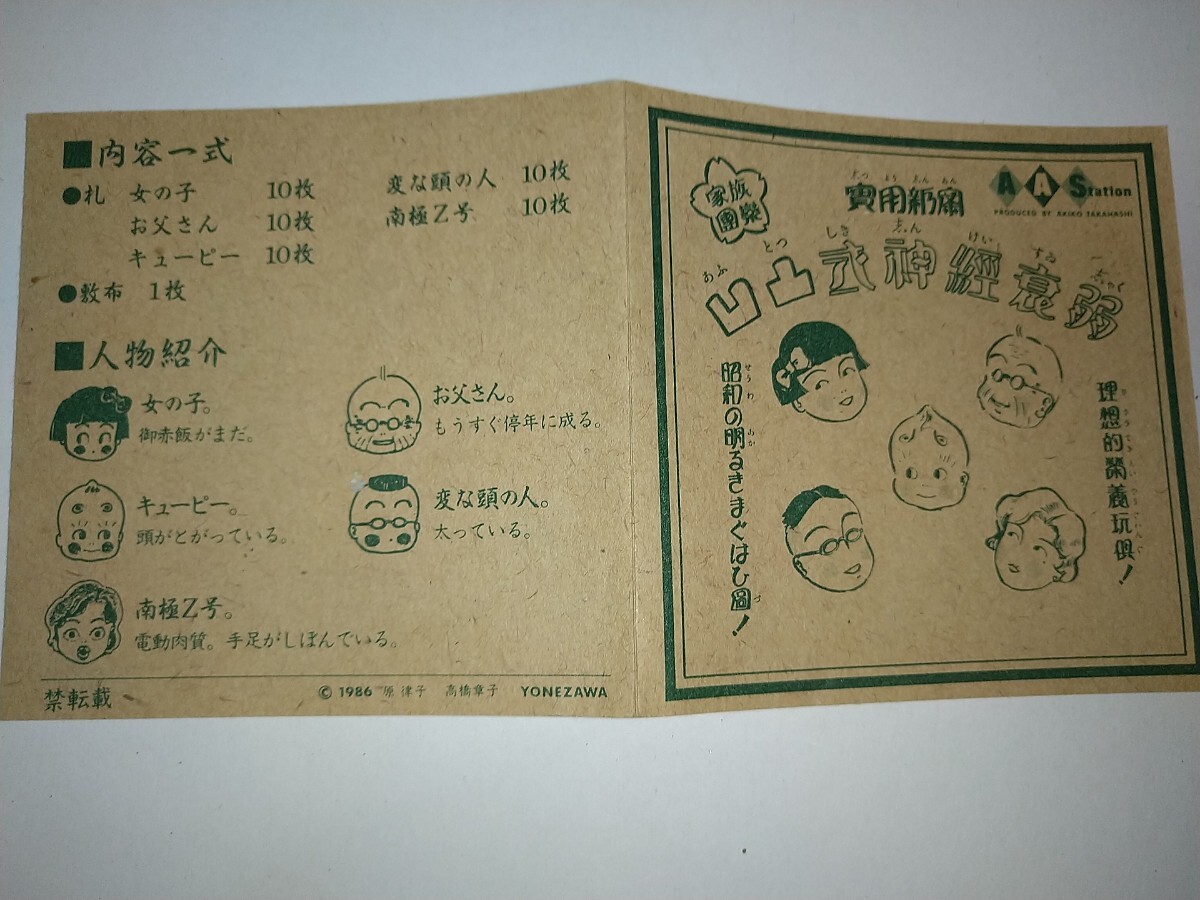 ■内容一式
●札 女の子 10枚
お父さん 10枚
キューピー 10枚
変な頭の人 10枚
南極Z号 10枚
●敷布 1枚
■人物紹介
女の子。
御赤飯がまだ。
お父さん。
もうすぐ停年に成る。
キューピー。
頭がとがっている。
変な頭の人。
太っている。
南極Z号。
電動肉質。手足がしぼんでいる。
禁転載
© 1986 原 律子 高橋章子 YONEZAWA
家族
團欒
實用新案
AAStation
PRODUCED BY AKIKO TAKAHASHI
凹凸式神經衰弱
昭和の明るきまぐはひ圖!
理想的榮養玩倶!